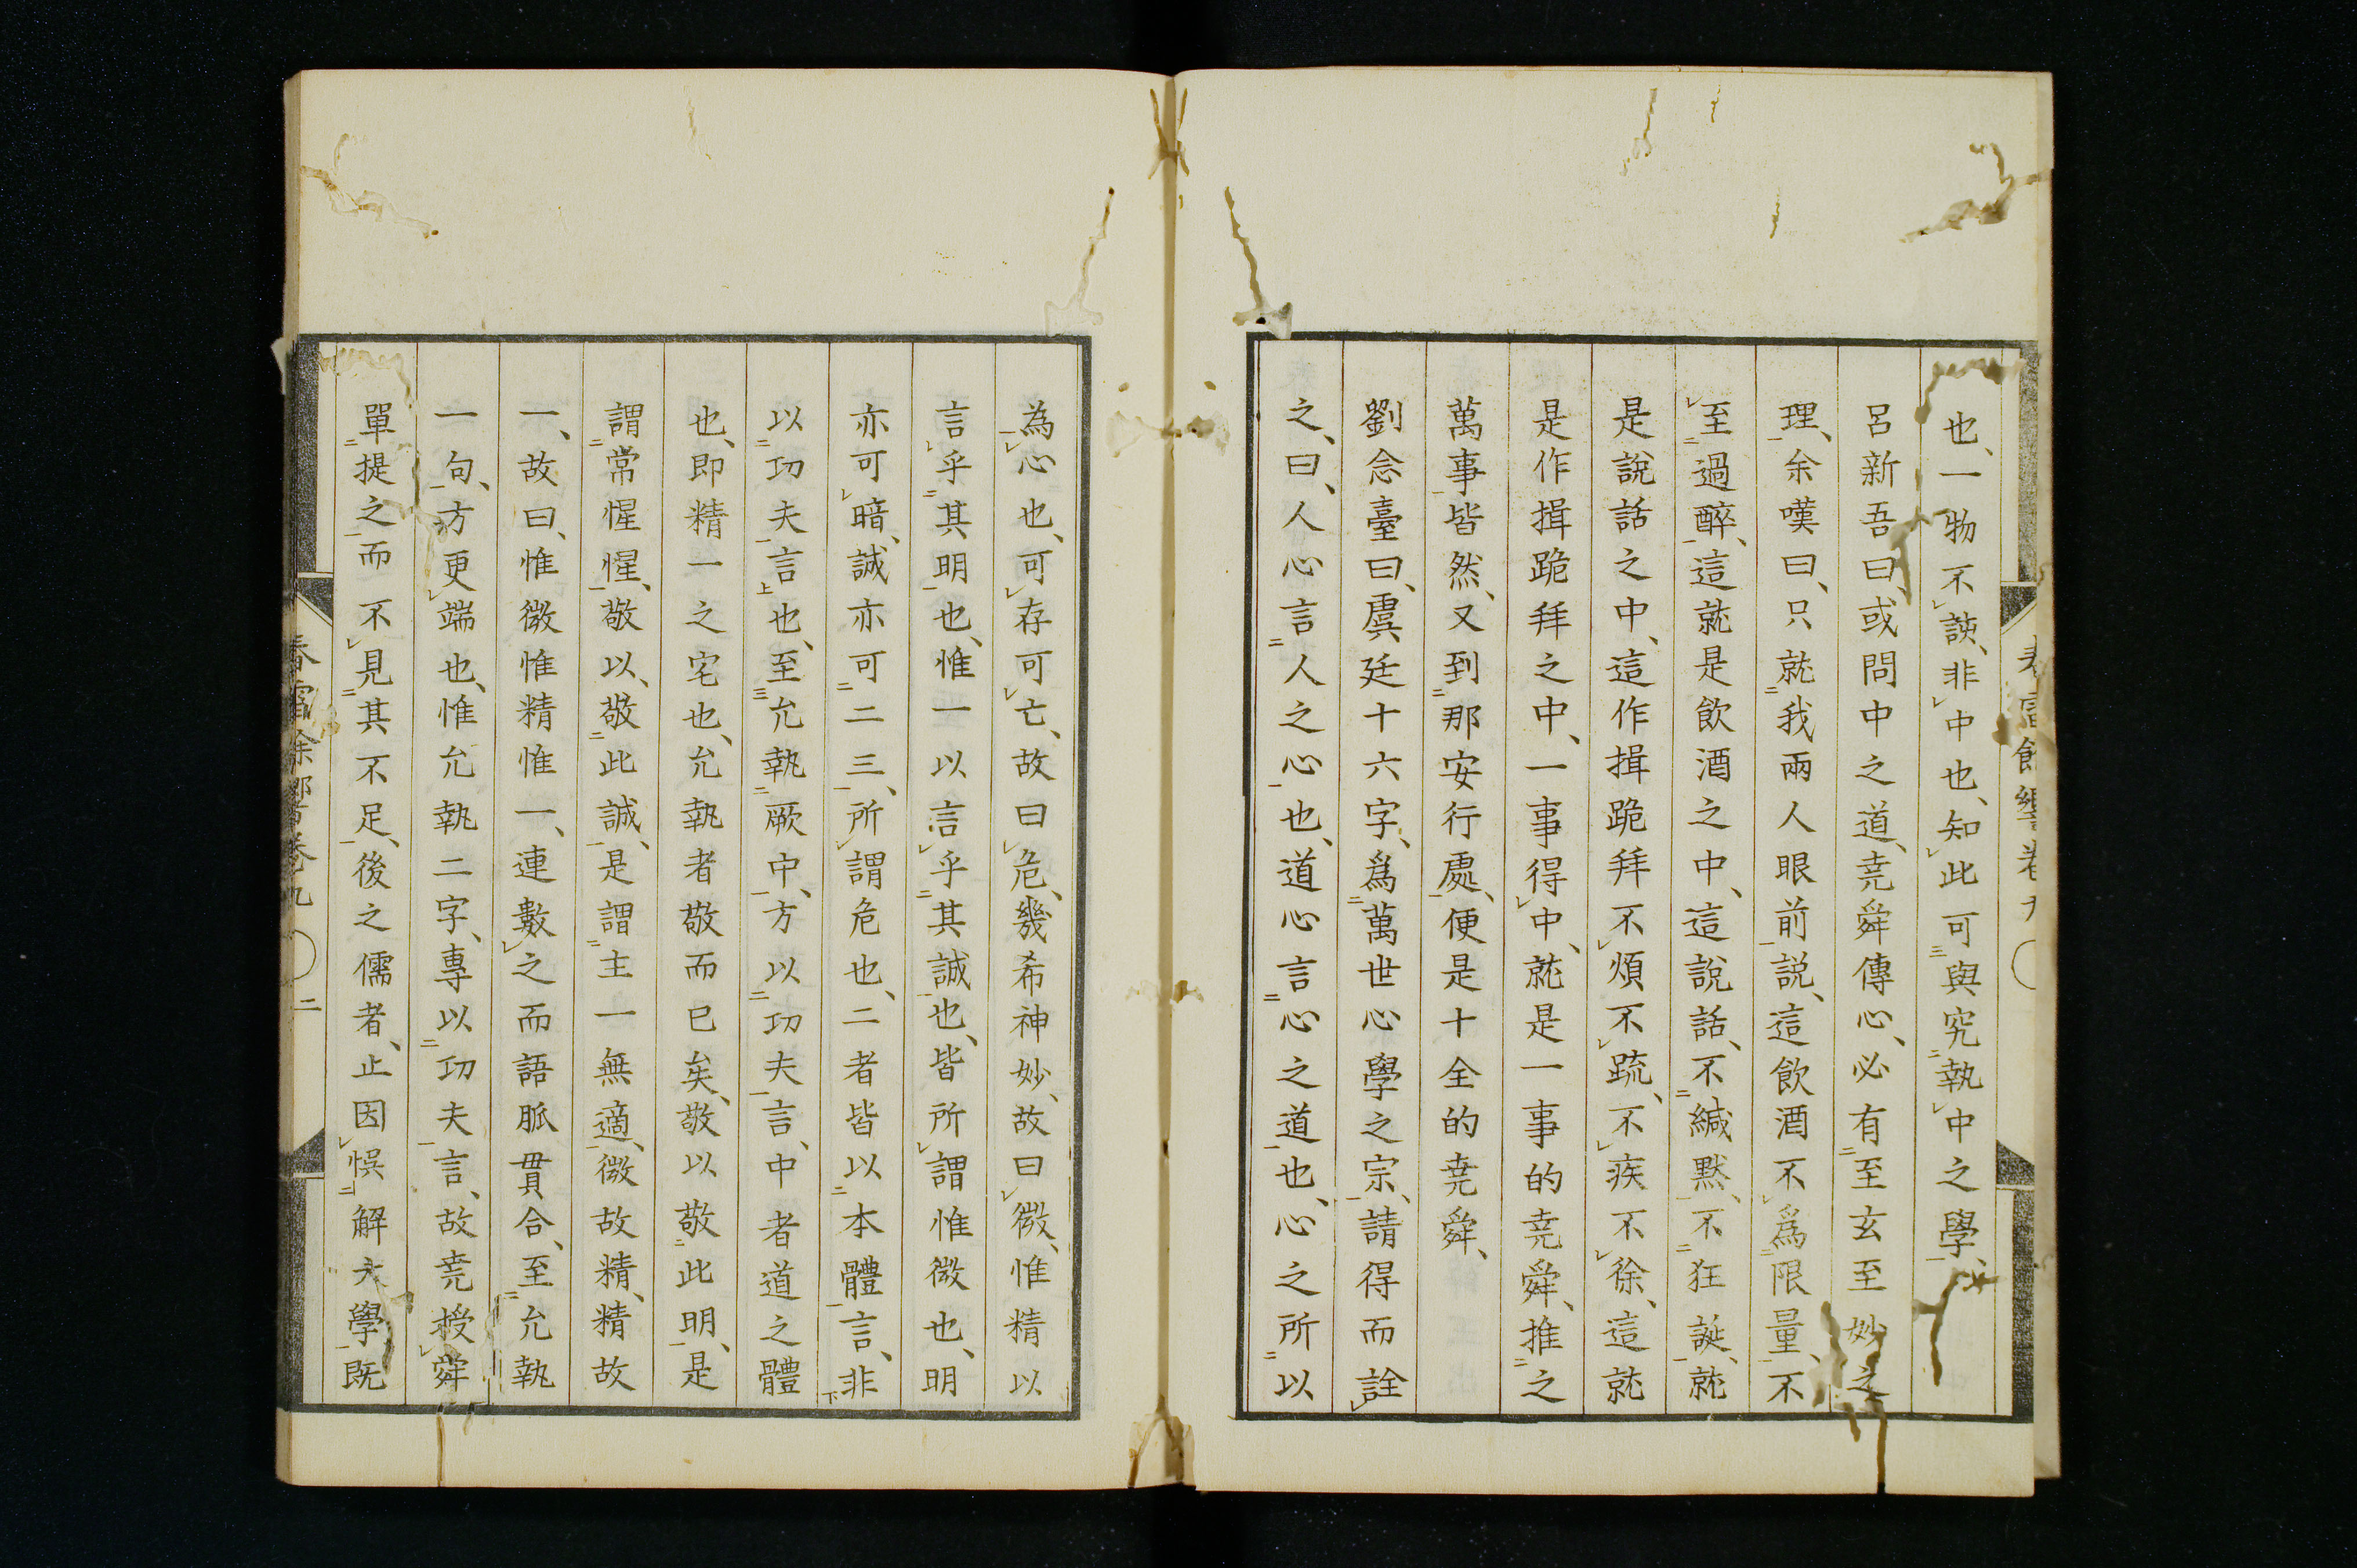 也、一物不該、非中也、知此可與究執中之學、
呂新吾曰、或問中之道、堯舜傳心、必有至玄至妙之
理、余嘆曰、只就我兩人眼前說、這飲酒不爲限量、不
至過醉、這就是飲酒之中、這說話、不緘默、不狂誕、就
是說話之中、這作揖跪拜不煩不疏、不疾不徐、這就
是作揖跪拜之中、一事得中、就是一事的堯舜、推之
萬事皆然、又到那安行處、便是十全的堯舜、
劉念臺曰、虞廷十六字、爲萬世心學之宗、請得而詮
之、曰、人心言人之心也、道心言心之道也、心之所以
為心也、可存可亡、故曰危、幾希神妙、故曰微、惟精以
言乎其明也、惟一以言乎其誠也、皆所謂惟微也、明
亦可暗、誠亦可二三、所謂危也、二者皆以本體言、非
以功夫言也、至允執厥中、方以功夫言、中者道之體
也、即精一之宅也、允執者敬而已矣、敬以敬此明、是
謂常惺惺、敬以敬此誠、是謂主一無適、微故精、精故
一、故曰、惟微惟精惟一、連數之而語脈貫合、至允執
一句、方更端也、惟允執二字、專以功夫言、故堯授舜
單提之而不見其不足、後之儒者、止因悞解大學既
卷九
二